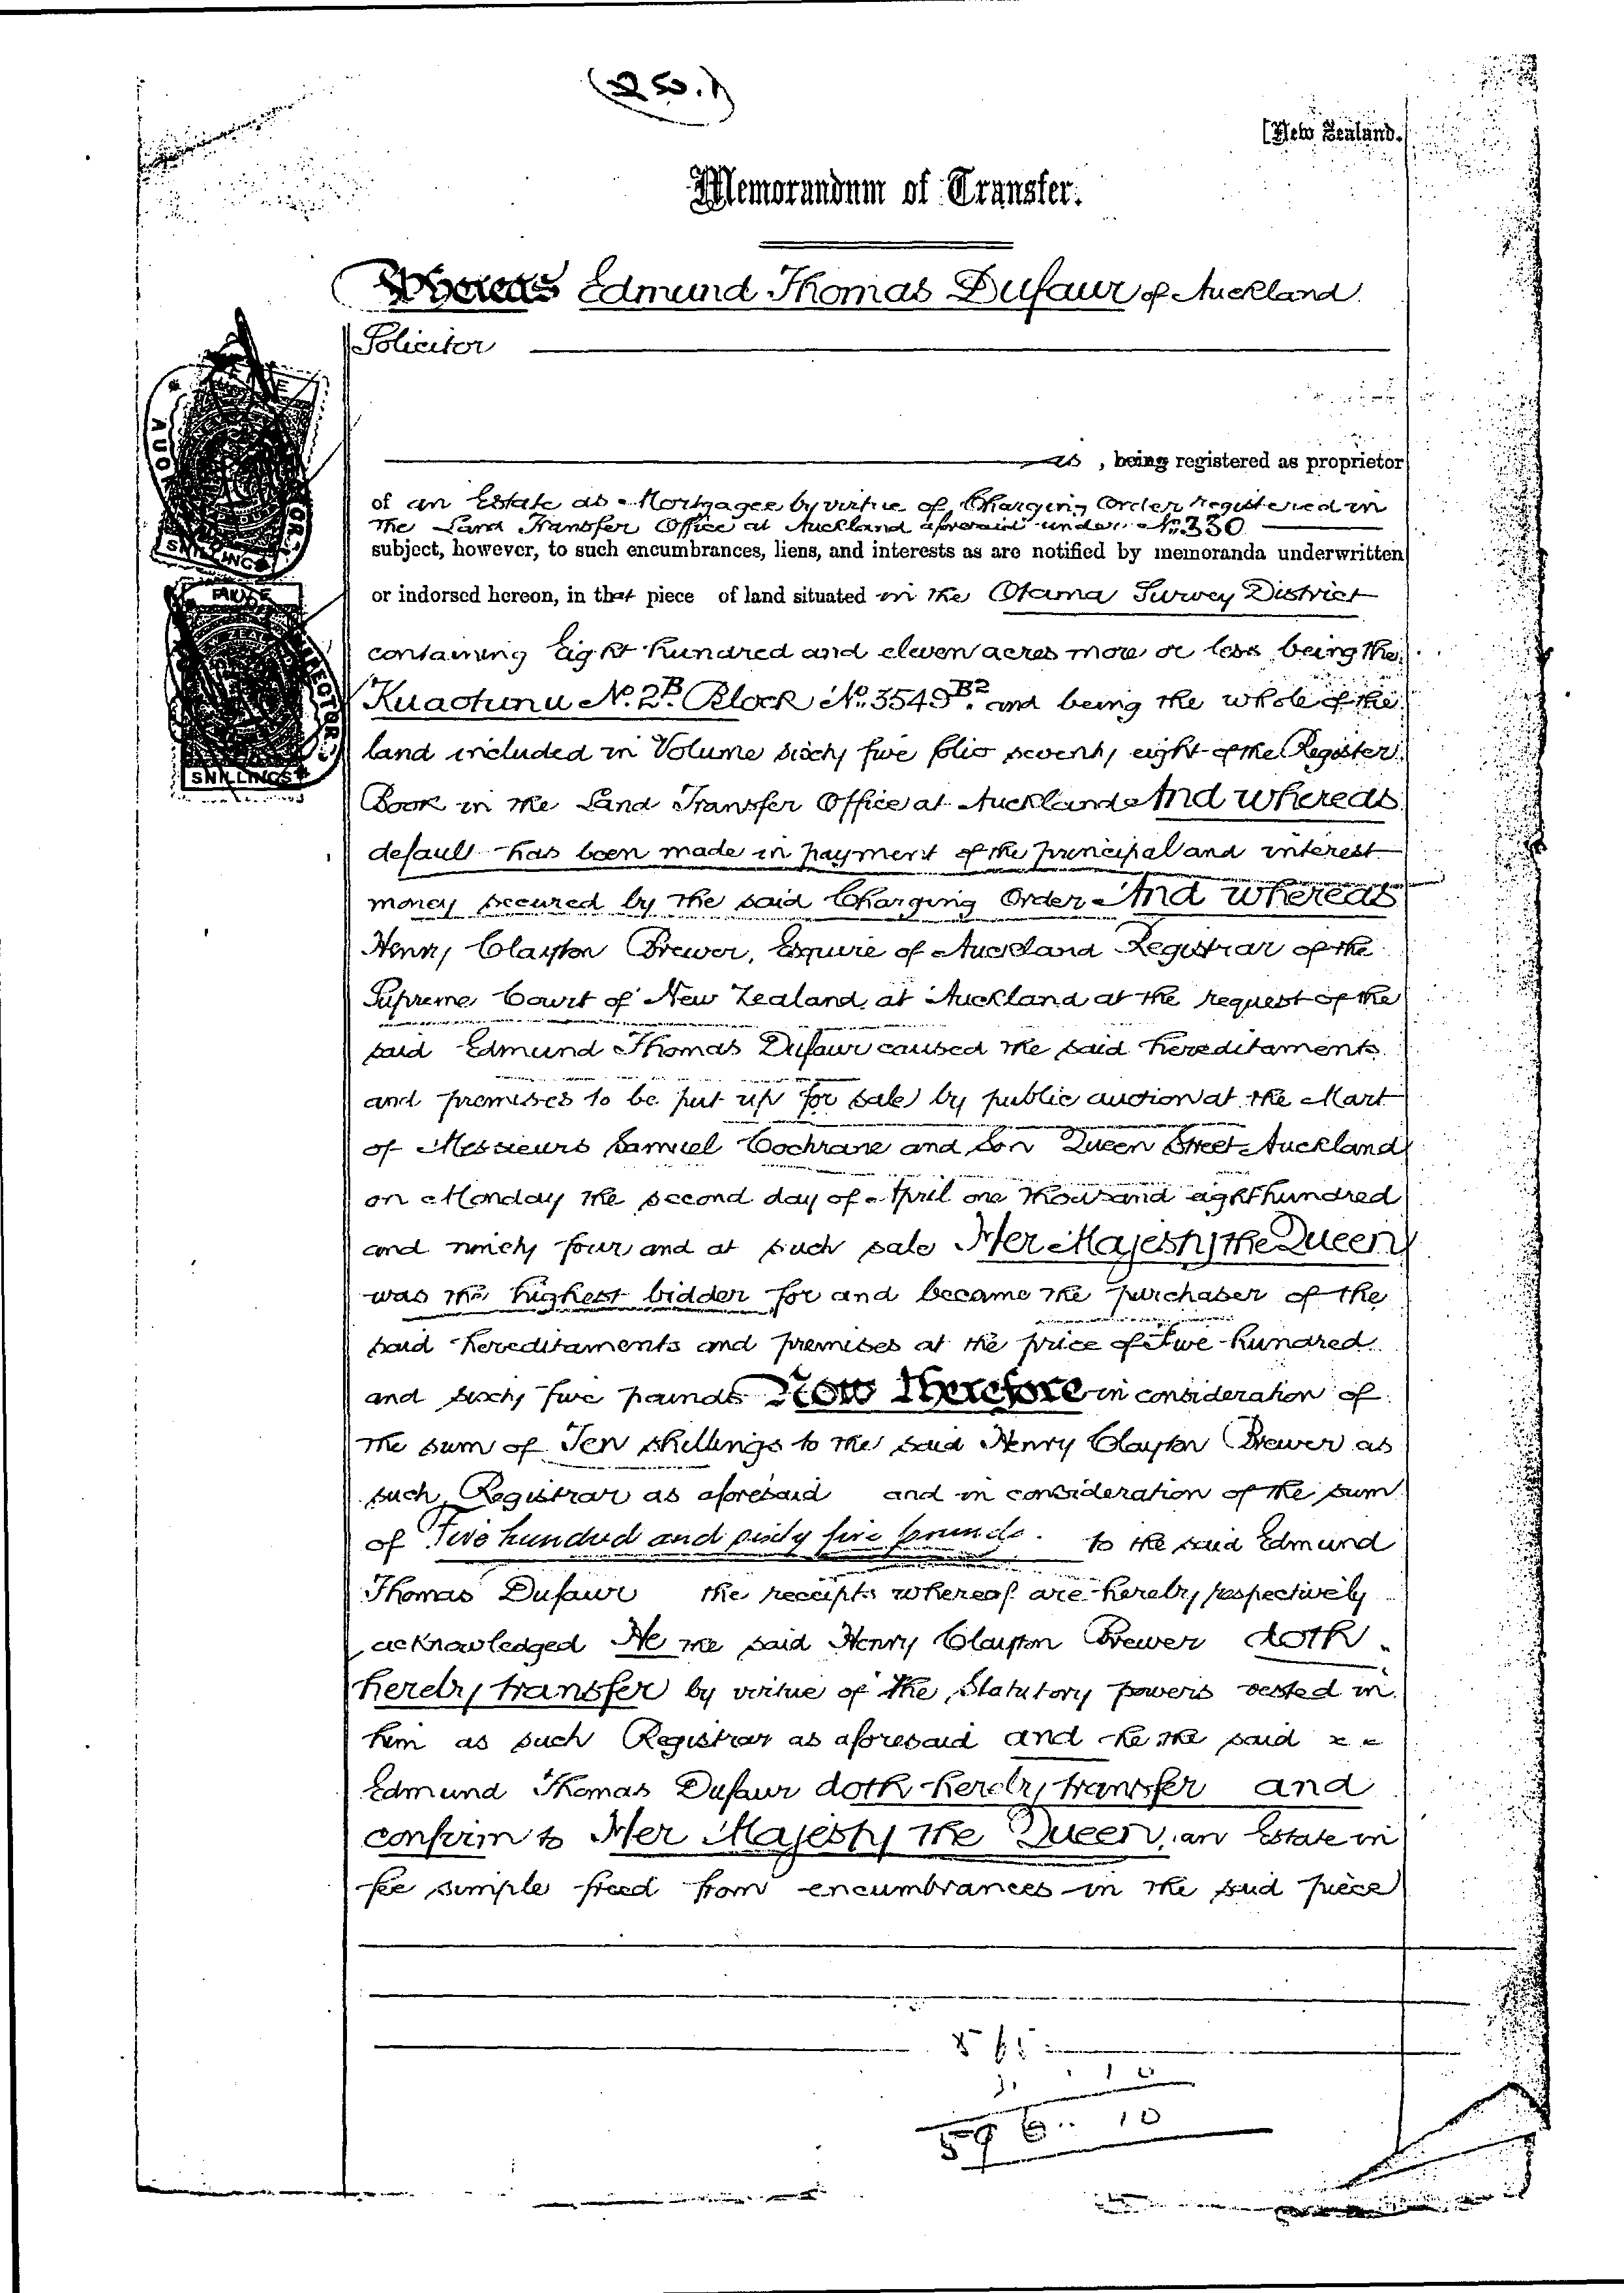 [New Zealand.
Memorandum of Transfer.
Whereas Edmund Thomas Dufaur of Auckland
Solicitor
is, being registered as proprietor
of an Estate as Mortgagee by virtue of Charging Order registered in
the Land Transfer Office at Auckland aforesaid under No. 330
subject, however, to such encumbrances, liens, and interests as are notified by memoranda underwritten
or indorsed hereon, in that piece of land situated in the Otama Survey District
containing Eight hundred and eleven acres more or less being the
Kuaotunu No. 2B. Block No. 3549B2. and being the whole of the
land included in Volume sixty five folio seventy eight of the Register
Book in the Land Transfer Office at Auckland And whereas
default has been made in payment of the principal and interest
money secured by the said Charging Order And whereas
Henry Clayton Brewer, Esquire of Auckland Registrar of the
Supreme Court of New Zealand at Auckland at the request of the
said Edmund Thomas Dufaur caused the said hereditaments
and premises to be put up for sale by public auction at the Mart
of Messieurs Samuel Cochrane and Son Queen Street Auckland
on Monday the second day of April one thousand eight hundred
and ninety four and at such sale Her Majesty the Queen
was the highest bidder for and became the purchaser of the
said hereditaments and premises at the price of Five hundred
and sixty five pounds Now Therefore in consideration of
the sum of Ten shillings to the said Henry Clayton Brewer as
such Registrar as aforesaid and in consideration of the sum
of Five hundred and sixty five pounds. to the said Edmund
Thomas Dufaur the receipts whereof are hereby respectively
acknowledged He the said Henry Clayton Brewer doth
hereby transfer by virtue of the Statutory powers vested in
him as such Registrar as aforesaid and he the said
Edmund Thomas Dufaur doth hereby transfer and
confirm to Her Majesty the Queen, an Estate in
fee simple freed from encumbrances in the said piece
565
10
596.. 10
SHILLINGS
SHILLINGS